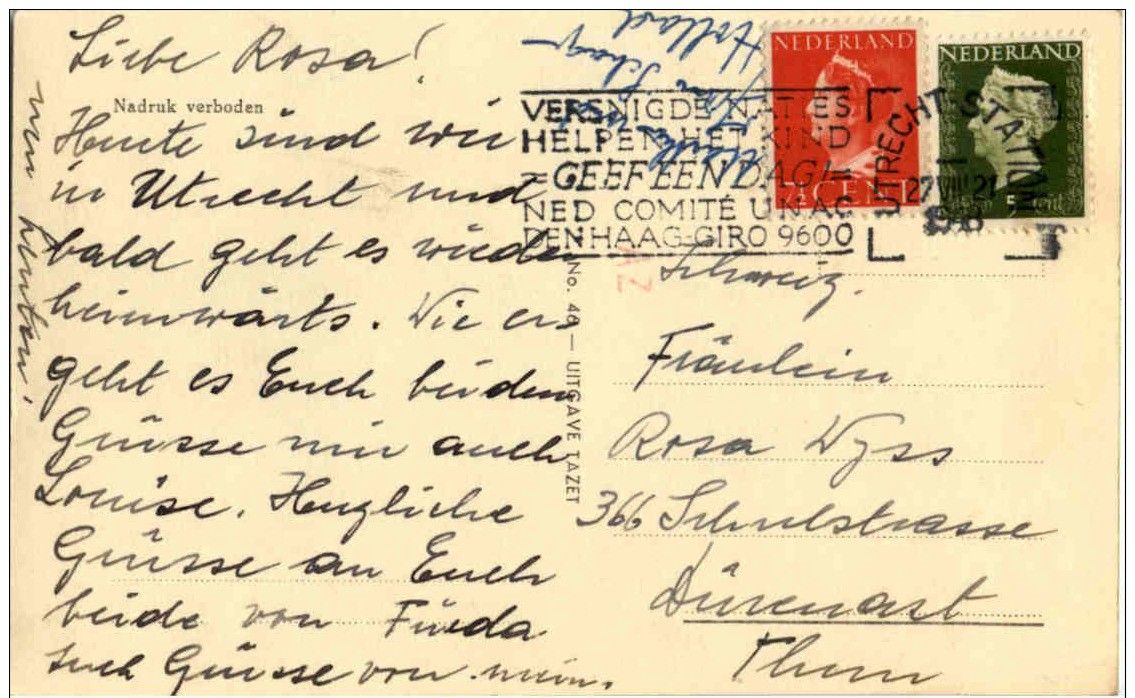 Liebe Rosa!
Nadruk verboden
Heute sind wir
in Utrecht und
bald geht es wieder
heimwärts. Wie er-
geht es Euch beiden
Grüsse mir auch
Louise. Herzliche
Grüsse an Euch
beide von Frieda
Auch Grüsse von mein.
Leuten.
Holland
NEDERLAND
CENT
NEDERLAND
5 cent
VERENIGDE NATIES
HELPEN HET KIND
=GEEF EEN DAG!=
NED COMITÉ U.N.A.C
DEN HAAG-GIRO 9600
UTRECHT STATION
27 VIII 21
1948
No. 46 — UITGAVE TAZET
Schweiz.
Fräulein
Rosa Wyss
366 Schulstrasse
Dürrenast
Thun